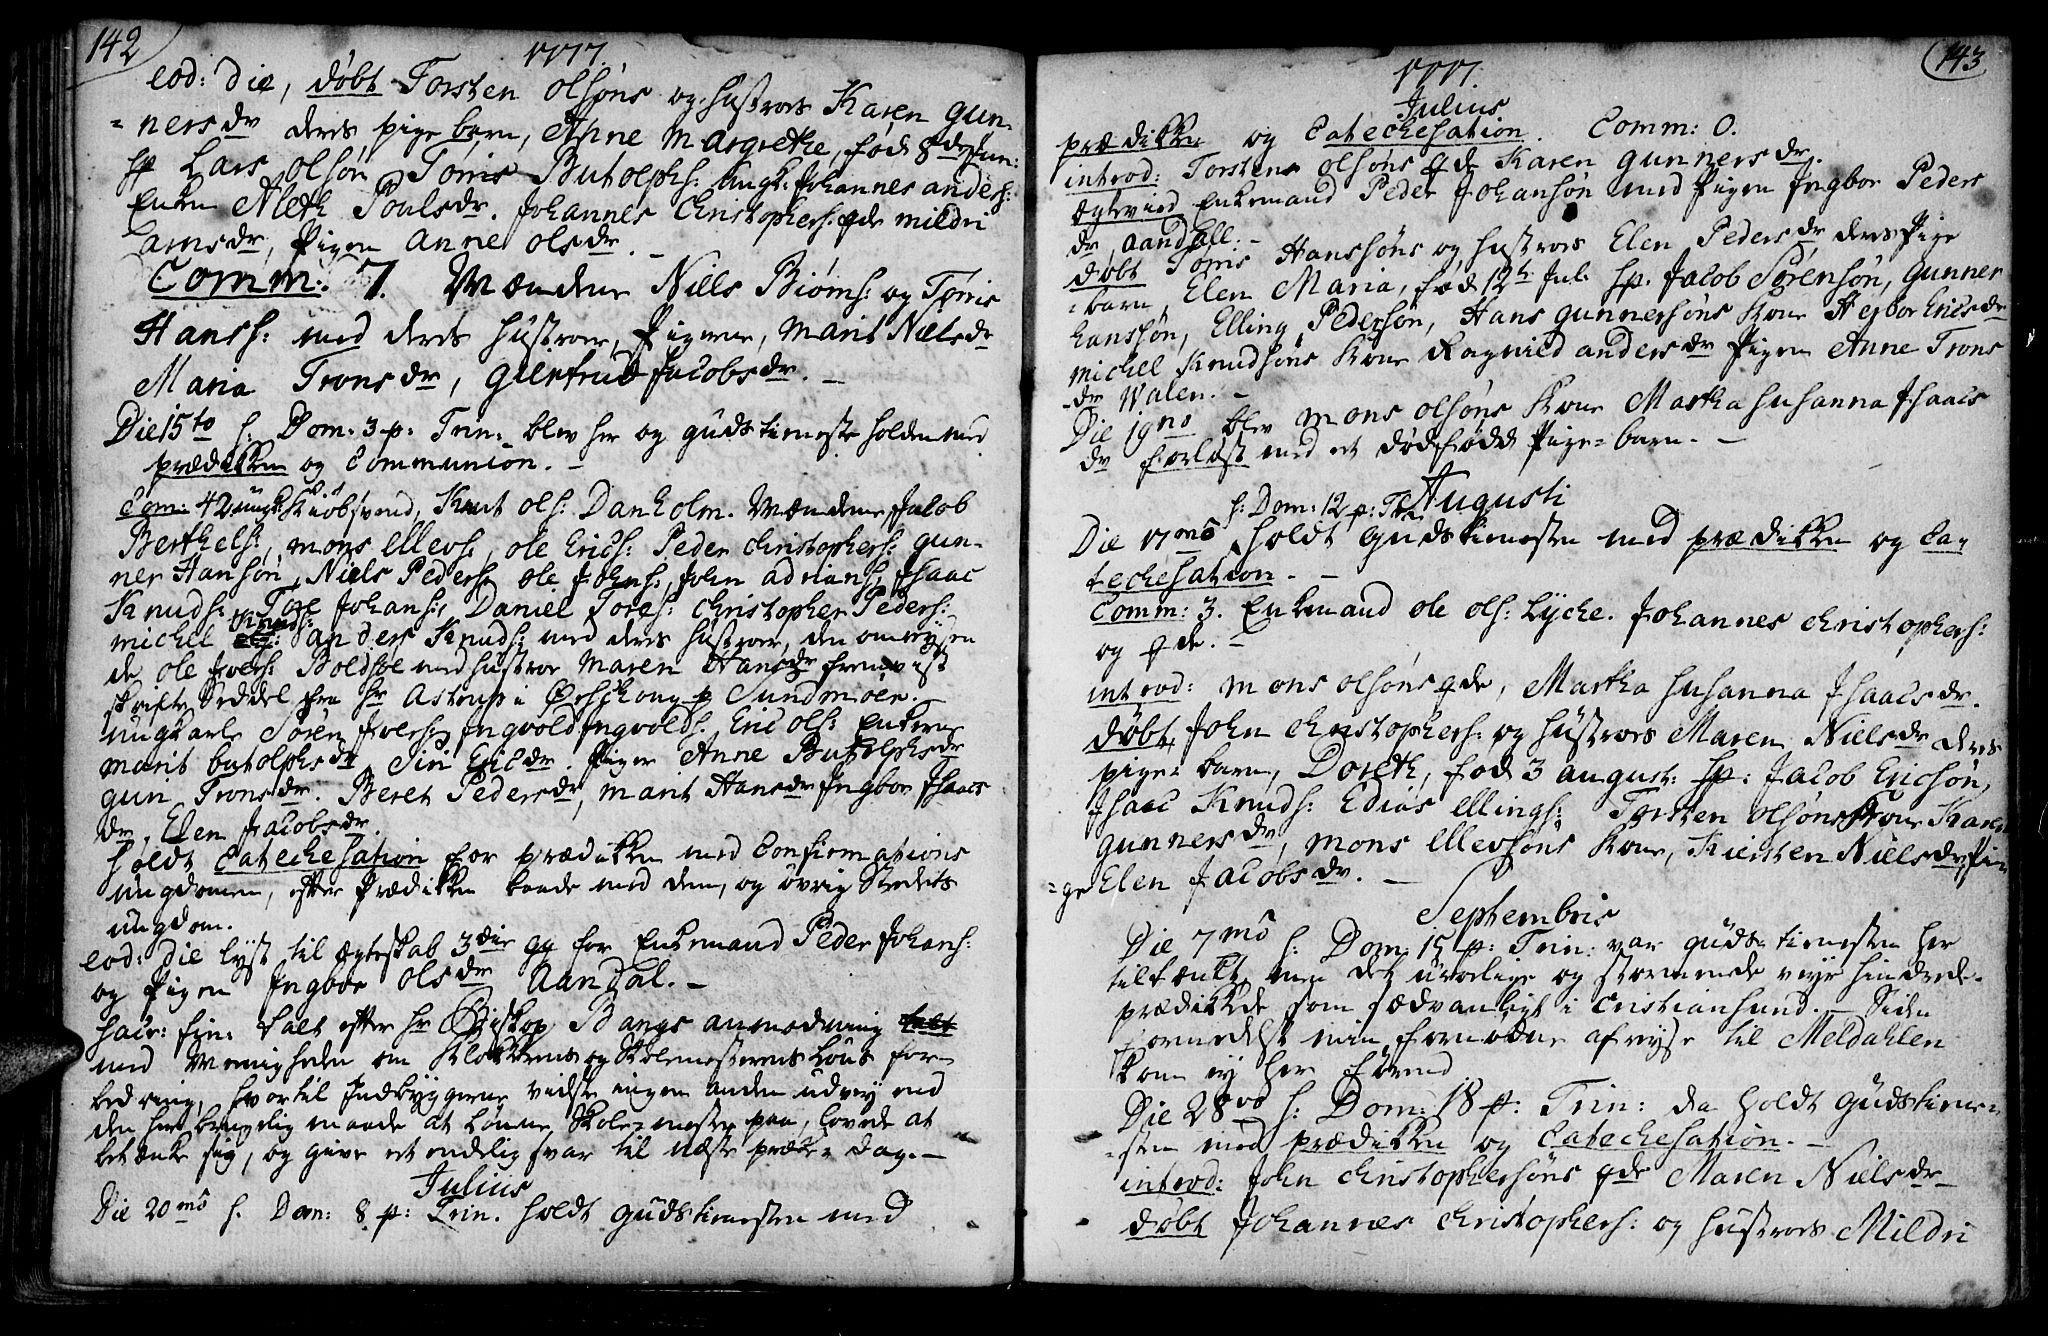 142
1777.
eod: Die, døbt Torsten Olsøns og hustroes Karen Gun-
=ners dr deres pige barn, Anne Margrethe, fød 8de Jun:
fp Lars Olsøn Tøris Butolphs: ungk: Johannes Anders:
Enken Aleth Pouls dr. Johannes Christophers: qde Mildri
Arns dr, Pigen Anne Ols dr. -
Comm: 7. Mændene Niels Biørns: og Tøris
Hans: med deres hustroer, Pigerne, Marit Niels dr
Maria Trons dr, Giertrud Jacobs dr. -
Die 15to h: Dom: 3 p: Trin: blev her og guds tieneste holden med
prædikken og Communion. -
Com: 42 ungk: Kiøbsvend, Knut Ols: Danholm. Mændene Jacob
Berthels:, Mons Ellevs:, Ole Erics: Peder Christophers: Gun-
ner Hansøn, Niels Peders: Ole Johns:, John Adrians: Isaac
Knuds: Tore Johans:, Daniel Toras: Christopher Peders:
Michel Knuds: Anders Knuds: med deres hustroer, den omreysen
de Ole Ivers: Boldsøe med hustroe Maren Hans dr fremvist
skrifte Seddel fra Hr Astrup i Ørschoug p Sundmøer.
ungkarle Søren Ivers: Ingvold Ingvolds: Eric Ols: Enkerne
Marit Butolphs dr Siri Eric dr. Piger Anne Butolphs dr
Gun Trons dr. Beret Peders dr, Marit Hans dr Ingbor Isaacs
dr, Elen Jacobs dr.
holdt Catechesation for prædikken med Confirmations
ungdomen, efter Prædikken baade med dem, og øvrig Stedets
ungdom.
eod: Die lyst til ægteskab 3die gg for Enkemand Peder Johans:
og Pigen Ingbor Ols dr Aandal. -
Sacr: fin: talt efter Hr Biskop Bangs anmodning
med Menigheden om Klokkerens og Skolemesterens Løns for-
bedring, hvortil Indbyggerne vidste ingen anden udvey end
den her brugelig maade at Lønne Skole-mester paa, lovede at
betænke sig, og give et endelig svar til næste præke-dag. -
Julius
Die 20mo h. Dom: 8 p: Trin. holdt Gudstienesten med
143
1777.
Julius
prædikken og Catechesation. Comm: 0.
introd: Torstens Olsøns qde Karen Gunners dr.
Ægtevied Enkemand Peder Johansøn med Pigen Ingbor Peders
dr Aandall: -
døbt Tøris Hanssøns og hustroes Elen Peders dr, deres Pige
=barn, Elen Maria, fød 12te Jul: fp: Jacob Sørensøn, Gunner
Hanssøn, Elling Pedersøn, Hans Gunnersøns Kone Hejbor Erics dr
Michel Knudsøns Kone Ragnild Anders dr Pigen Anne Trons
dr Walen. -
Die 19no blev Mons Olsøns Kone Martha Susanna Isaacs
dr forløst med et dødfødd Pige-barn. -
Augusti
Die 17mo h: Dom: 12 p: Tr: holdt Gudstienesten med prædikken og Ca-
techesation. -
Comm: 3. Enkemand Ole Ols: Lyche. Johannes Christophers:
og qde. -
introd: Mons Olsøns qde, Martha Susanna Isaacs dr.
døbt, John Christophers: og Hustroes Maren Niels dr deres
pige-barn, Doreth, fød 3 August: fp: Jacob Ericsøn,
Isaac Knuds: Edias Ellings: Torsten Olsøns Kone Karen
Gunners dr, Mons Ellevsøns Kone, Kiersten Niels dr, Pi-
=ge Elen Jacobs dr. -
Septembris
Die 7mo h: Dom: 15 p: Trin: var Guds tienesten her
tiltænkt, men det urolige og stormende veyr hindrede.
prædikkede som sædvanligt i Cristiansund. - Siden
formedelst min fornødne afreyse til Meldahlen
kom ey her førend
Die 28vo h: Dom: 18 p: Trin: da holdt Gudstiene-
=sten med prædikken og Catechesation. -
introd: John Christophersøns qde Maren Niels dr
døbt Johannes Christophers: og hustroes Mildri